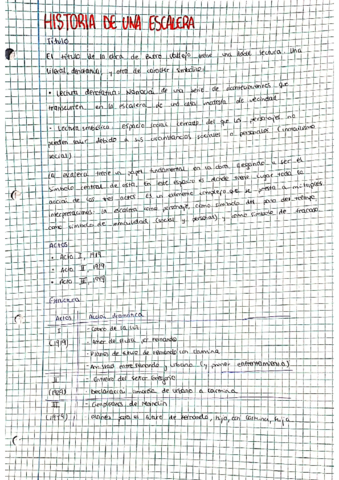 HISTORIA DE UNA ESCALERA
Título
El título de la obra de Buero Vallejo posee una doble lectura. Una
literal, denotativa, y otra de carácter simbólico:
• Lectura denotativa: narración de una serie de acontecimientos que
transcurren en la escalera de una casa modesta de vecindad.
• Lectura simbólica: espacio social cerrado del que los personajes no
pueden salir debido a sus circunstancias sociales o personales (inmovilismo
social)
La escalera tiene un papel fundamental en la obra llegando a ser el
símbolo central de esta. En este espacio es donde tiene lugar toda la
acción de los tres actos. Es un elemento complejo que se presta a múltiples
interpretaciones: la escalera como personaje, como símbolo del paso del tiempo,
como símbolo de inmovilidad (social y personal) y como símbolo de fracaso.
Actos
• Acto I, 1919
• Acto II, 1929
• Acto III, 1949
Estructura
Actos Acción dramática
I - Cobro de la luz
(1919) - Amor de Elvira por Fernando
- Planes de futuro de Fernando con Carmina
- Amistad entre Fernando y Urbano (y primer enfrentamiento)
II - Entierro del señor Gregorio
(1929) - Declaración amorosa de Urbano a Carmina
III
(1949) - Planes para el futuro de Fernando, hijo, con Carmina, hija